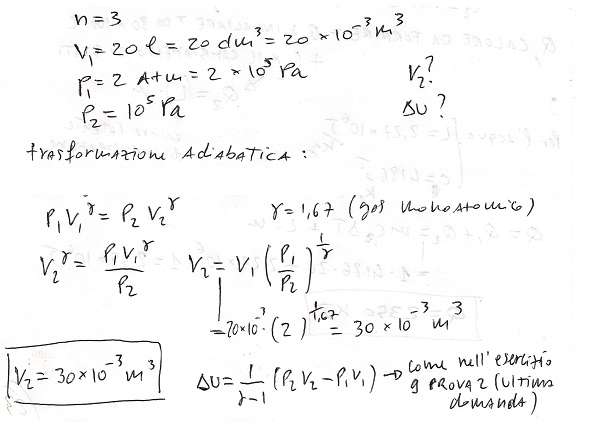 n=3
V₁ = 20 l = 20 dm³ = 20 × 10⁻³ m³
P₁ = 2 Atm = 2 × 10⁵ Pa
V₂?
P₂ = 10⁵ Pa
ΔU?
trasformazione Adiabatica :
P₁ V₁^γ = P₂ V₂^γ
γ = 1,67 (gas monoatomico)
V₂^γ = P₁ V₁^γ / P₂
V₂ = V₁ (P₁ / P₂)^(1/γ)
= 20×10⁻³ · (2)^(1/1,67) = 30 × 10⁻³ m³
V₂ = 30 × 10⁻³ m³
ΔU = 1/(γ-1) (P₂ V₂ - P₁ V₁) → come nell'esercizio
9 PROVA 2 (ultima
domanda)